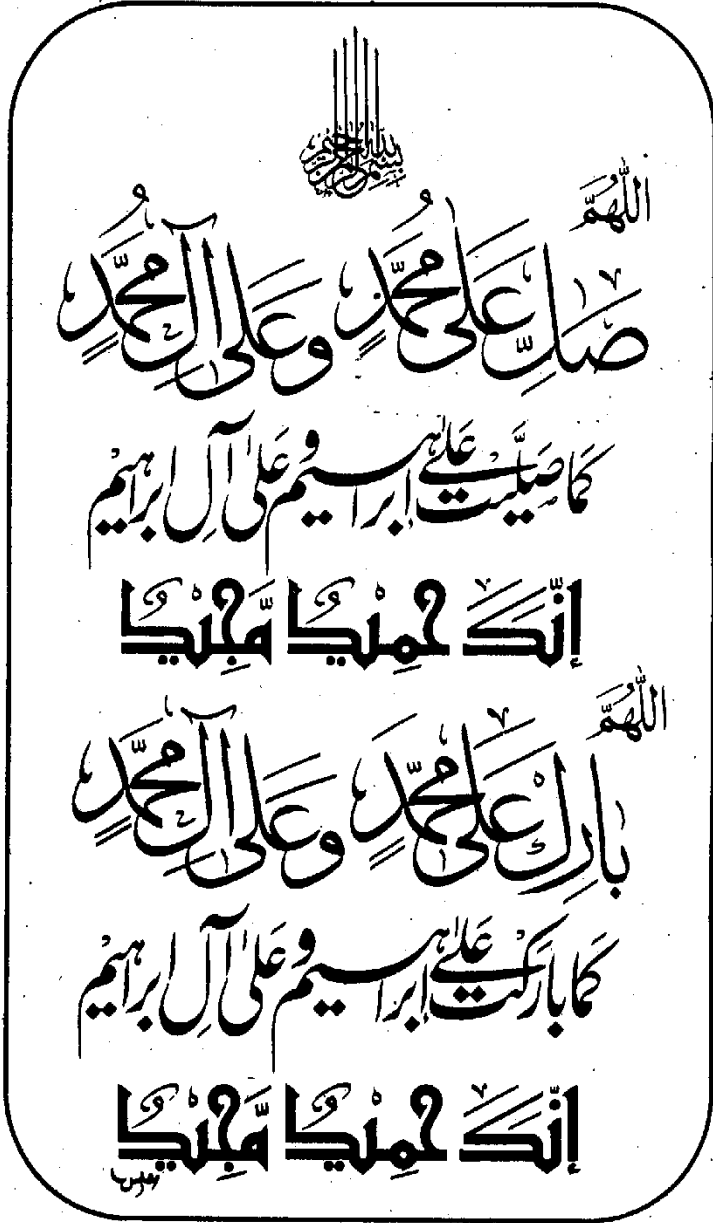 بسم الله الرحمن الرحيم
اللّٰهُمَّ
صَلِّ عَلٰى مُحَمَّدٍ وَعَلٰى آلِ مُحَمَّدٍ
كَمَا صَلَّيْتَ عَلٰى إبْرَاهِيمَ وَعَلٰى آلِ ابْرَاهِيْم
إنَّكَ حَمِيْدٌ مَّجِيْدٌ
اللّٰهُمَّ
بَارِكْ عَلٰى مُحَمَّدٍ وَعَلٰى آلِ مُحَمَّدٍ
كَمَا بَارَكْتَ عَلٰى إبْرَاهِيمَ وَعَلٰى آلِ ابْرَاهِيْم
إنَّكَ حَمِيْدٌ مَّجِيْدٌ